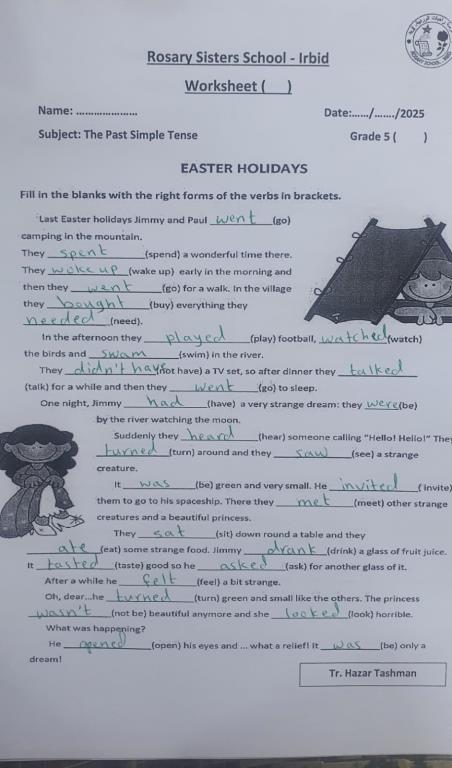 Rosary Sisters School - Irbid
Worksheet ( )
Name: .....................
Date:....../......./2025
Subject: The Past Simple Tense
Grade 5 ( )
EASTER HOLIDAYS
Fill in the blanks with the right forms of the verbs in brackets.
Last Easter holidays Jimmy and Paul went (go)
camping in the mountain.
They spent (spend) a wonderful time there.
They woke up (wake up) early in the morning and
then they went (go) for a walk. In the village
they bought (buy) everything they
needed (need).
In the afternoon they played (play) football, watched (watch)
the birds and swam (swim) in the river.
They didn't have (not have) a TV set, so after dinner they talked
(talk) for a while and then they went (go) to sleep.
One night, Jimmy had (have) a very strange dream: they were (be)
by the river watching the moon.
Suddenly they heard (hear) someone calling "Hello! Hello!" They
turned (turn) around and they saw (see) a strange
creature.
It was (be) green and very small. He invited ( invite)
them to go to his spaceship. There they met (meet) other strange
creatures and a beautiful princess.
They sat (sit) down round a table and they
ate (eat) some strange food. Jimmy drank (drink) a glass of fruit juice.
It tasted (taste) good so he asked (ask) for another glass of it.
After a while he felt (feel) a bit strange.
Oh, dear...he turned (turn) green and small like the others. The princess
wasn't (not be) beautiful anymore and she looked (look) horrible.
What was happening?
He opened (open) his eyes and ... what a relief! It was (be) only a
dream!
Tr. Hazar Tashman